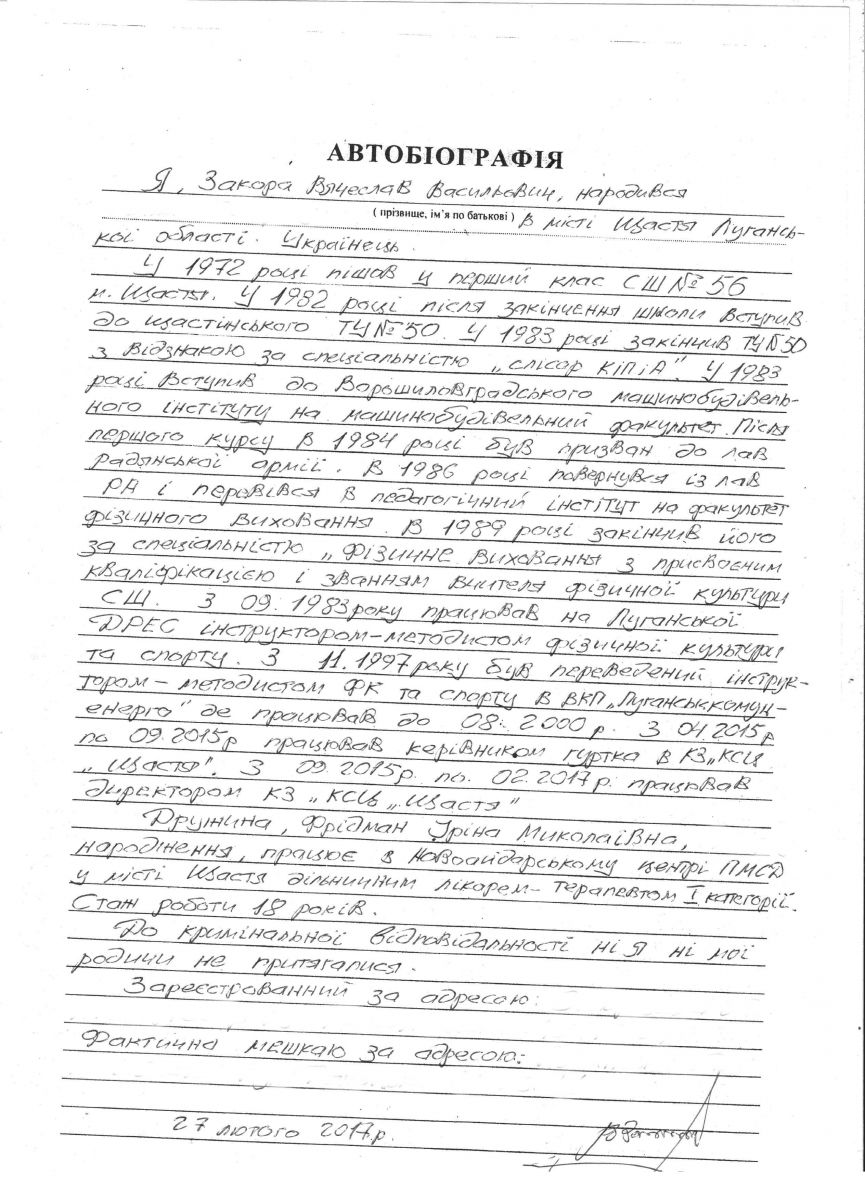 АВТОБІОГРАФІЯ
Я, Закора Вячеслав Васильович, народився
( прізвище, ім'я по батькові ) в місті Щастя Лугансь-
кої області. Українець.
У 1972 році пішов у перший клас СШ №56
м. Щастя. У 1982 році після закінчення школи вступив
до щастінського ТУ №50. У 1983 році закінчив ТУ №50
з відзнакою за спеціальністю „слісар КІПіА". У 1983
році вступив до Ворошиловградського машинобудівель-
ного інституту на машинобудівельний факультет. Після
першого курсу в 1984 році був призван до лав
радянської армії. В 1986 році повернувся із лав
РА і перевівся в педагогічний інститут на факультет
фізичного виховання. В 1989 році закінчив його
за спеціальністю „фізичне виховання з присвоєним
кваліфікацією і званням вчителя фізичної культури
СШ. З 09. 1983 року працював на Луганської
ДРЕС інструктором-методистом фізичної культури
та спорту. З 11.1997 року був переведений інструк-
тором-методистом ФК та спорту в ВКП „Луганськкомун-
енерго" де працював до 08. 2000 р. З 04.2015р
по 09.2015р працював керівником гуртка в КЗ „КСЦ
„Щастя". З 09.2015р. по. 02.2017р. працював
директором КЗ „КСЦ „Щастя"
Дружина, Фрідман Іріна Миколаївна,
народження, працює в Новоайдарському центрі ПМСД
у місті Щастя дільничним лікарем-терапевтом I категорії.
Стаж роботи 18 років.
До кримінальної відповідальності ні я ні мої
родичи не притягалися.
Зареєстрованний за адресою:
Фактична мешкаю за адресою:
27 лютого 2017р.